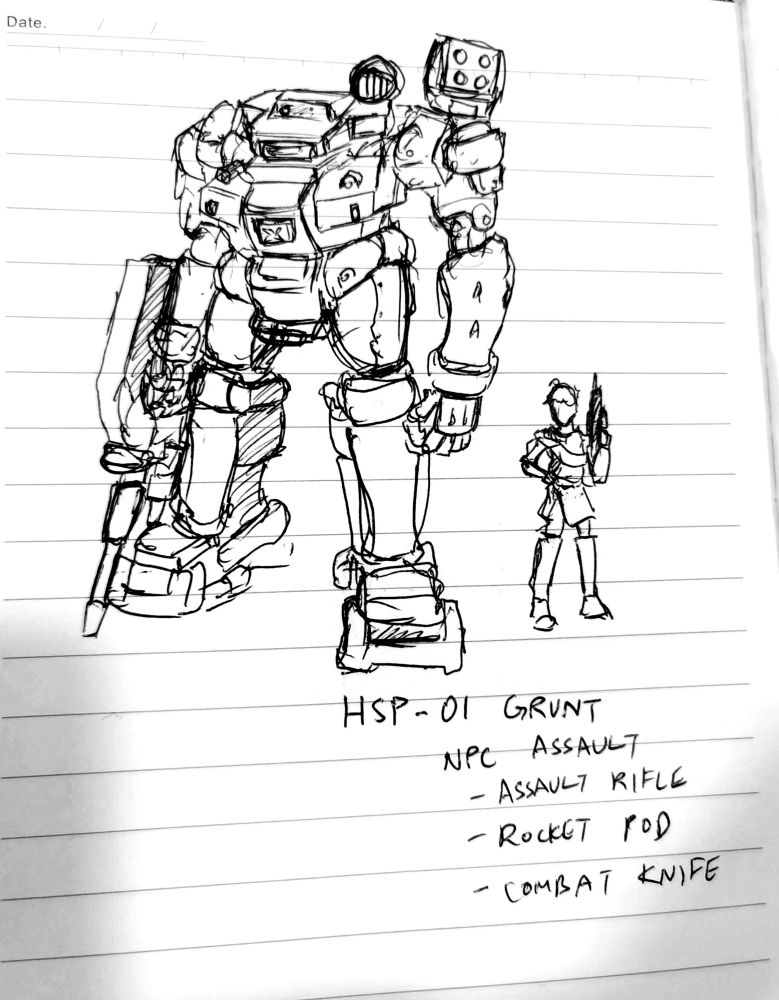 Date. / /
HSP-01 GRUNT
NPC ASSAULT
- ASSAULT RIFLE
- ROCKET POD
- COMBAT KNIFE